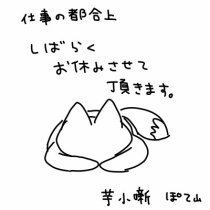 仕事の都合上
しばらく
お休みさせて
頂きます。
芋小噺 ぽて山